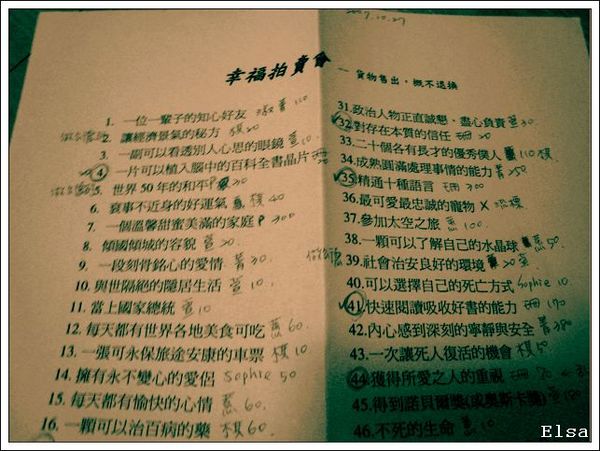 2007.10.27
幸福拍賣會 — 貨物售出,概不退換
1. 一位一輩子的知心好友 110
2. 讓經濟景氣的秘方 棋20
3. 一副可以看透別人心思的眼鏡 萱10
4. 一片可以植入腦中的百科全書晶片 珊
5. 世界 50 年的和平 30
6. 衰事不近身的好運氣 棋40
7. 一個溫馨甜蜜美滿的家庭 300
8. 傾國傾城的容貌 萱20.
9. 一段刻骨銘心的愛情 菁30
10. 與世隔絕的隱居生活 萱10.
11. 當上國家總統 萱10
12. 每天都有世界各地美食可吃 蕙60.
13. 一張可永保旅途安康的車票 棋10
14. 擁有永不變心的愛侶 Sophie 50
15. 每天都有愉快的心情 蕙60.
16. 一顆可以治百病的藥 棋60.
31. 政治人物正直誠懇、盡心負責 萱30
32. 對存在本質的信任 珊20
33. 二十個各有長才的優秀僕人 110 棋
34. 成熟圓滿處理事情的能力 菁250
35. 精通十種語言 珊300
36. 最可愛最忠誠的寵物 X
37. 參加太空之旅 蕙100.
38. 一顆可以了解自己的水晶球 蕙50.
39. 社會治安良好的環境 20
40. 可以選擇自己的死亡方式 Sophie 10
41. 快速閱讀吸收好書的能力 珊170
42. 內心感到深刻的寧靜與安全 菁380
43. 一次讓死人復活的機會 棋50
44. 獲得所愛之人的重視 珊
45. 得到諾貝爾獎(或奧斯卡獎) 蕙150
46. 不死的生命 蕙10
Elsa